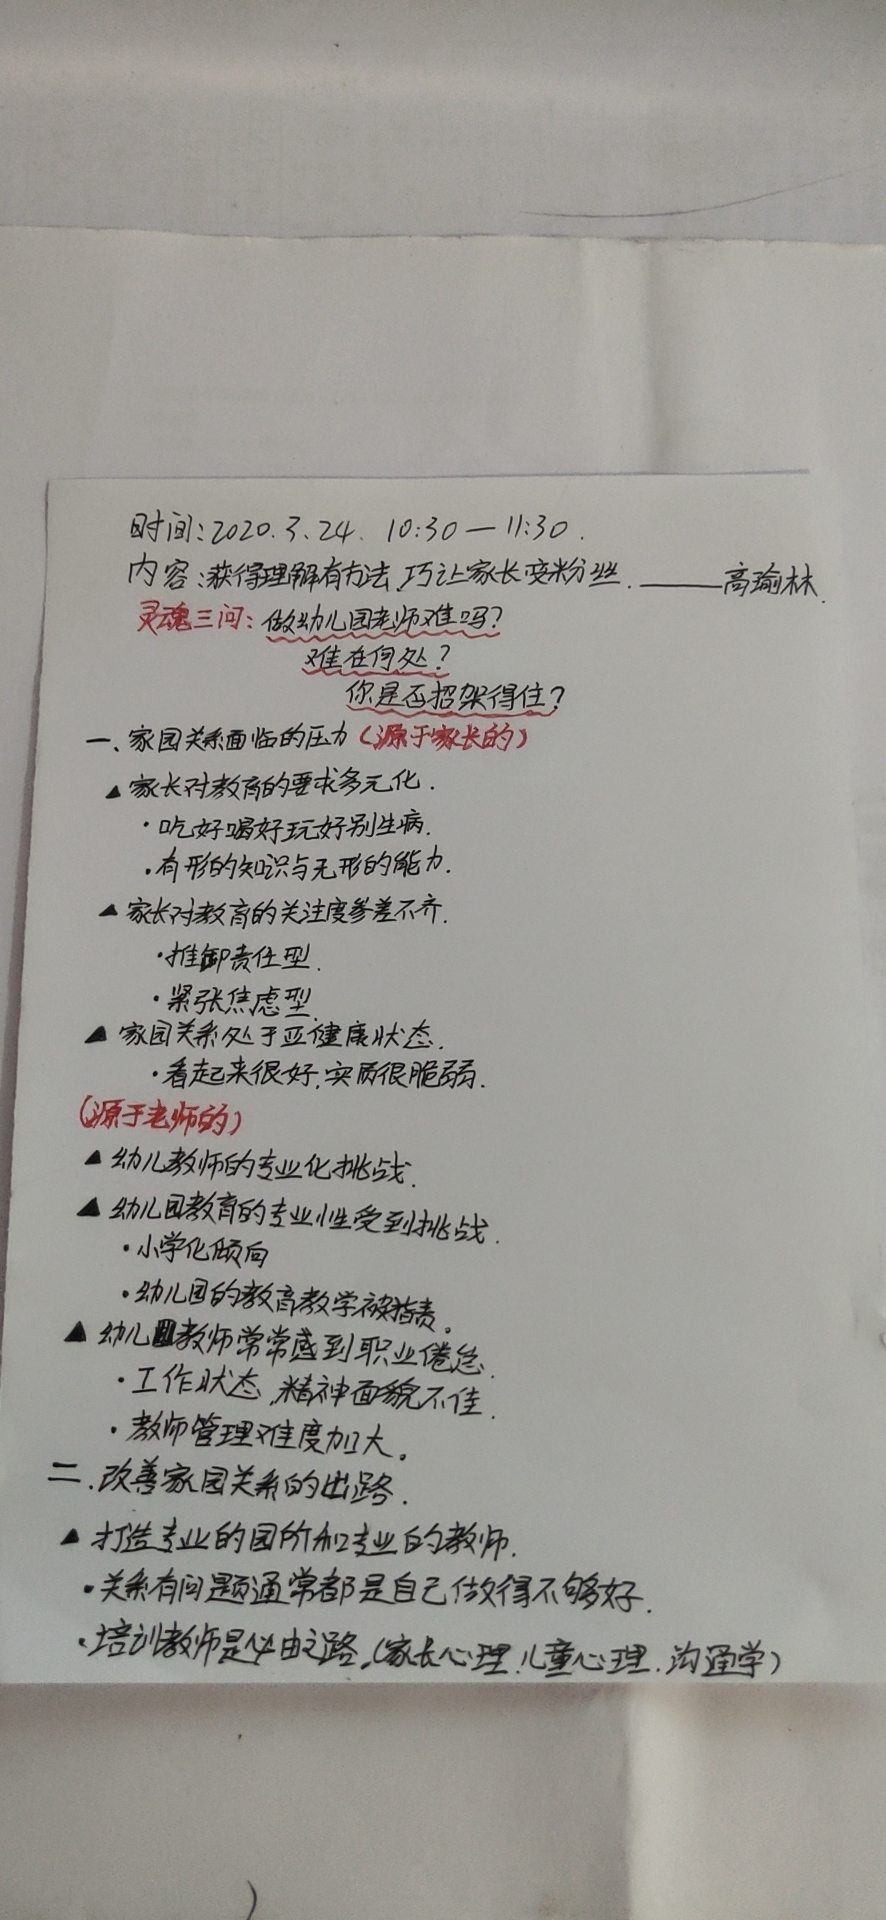 时间:2020.3.24. 10:30—11:30.
内容:获得理解有方法,巧让家长变粉丝.——高瑜林.
灵魂三问:做幼儿园老师难吗?
难在何处?
你是否招架得住?
一、家园关系面临的压力(源于家长的)
▲家长对教育的要求多元化.
·吃好喝好玩好别生病.
·有形的知识与无形的能力.
▲家长对教育的关注度参差不齐.
·推卸责任型.
·紧张焦虑型.
▲家园关系处于亚健康状态.
·看起来很好,实质很脆弱.
(源于老师的)
▲幼儿教师的专业化挑战.
▲幼儿园教育的专业性受到挑战.
·小学化倾向
·幼儿园的教育教学被指责。
▲幼儿教师常常感到职业倦怠.
·工作状态,精神面貌不佳.
·教师管理难度加大。
二.改善家园关系的出路.
▲打造专业的园所和专业的教师.
·关系有问题通常都是自己做得不够好.
·培训教师是必由之路.(家长心理.儿童心理.沟通学)